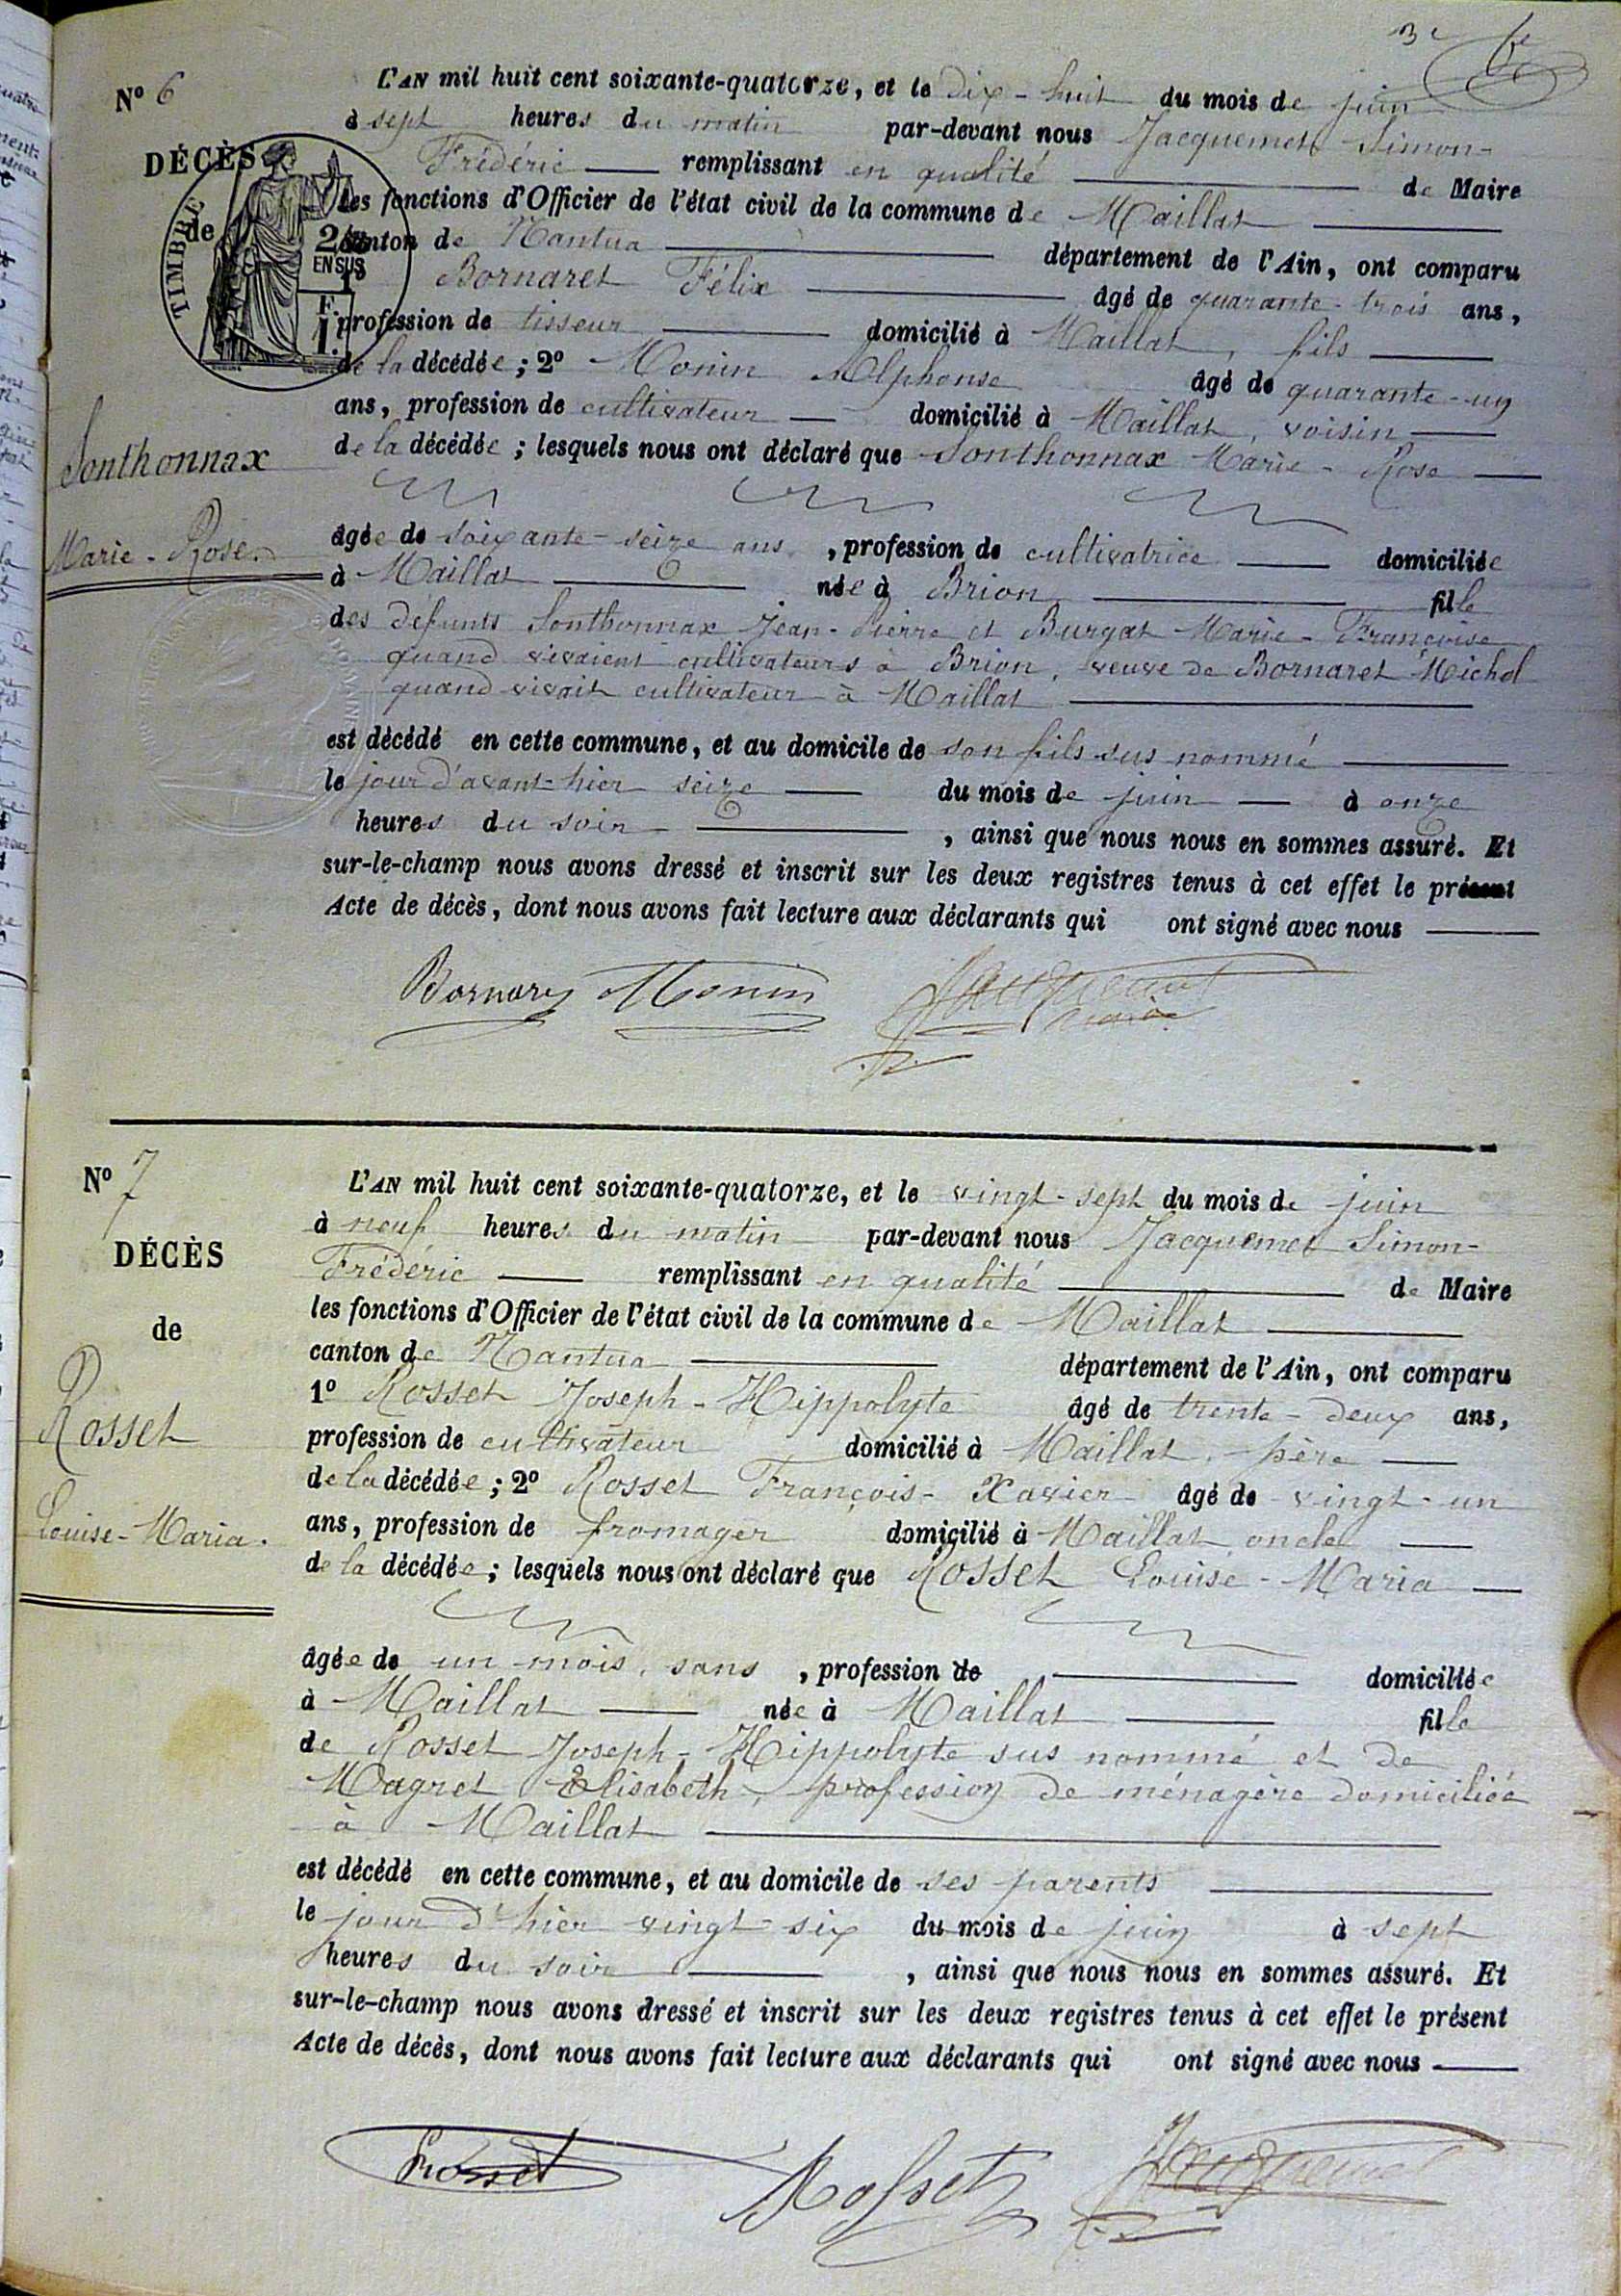 3e
Nº 6
L'AN mil huit cent soixante-quatorze, et le dix-huit du mois de juin
à sept heures du matin par-devant nous Jacquemet Simon-
DÉCÈS
Frédéric remplissant en qualité de Maire
les fonctions d'Officier de l'état civil de la commune de Maillat
de
TIMBRE
2/10
EN SUS
F.
1.
canton de Nantua département de l'Ain, ont comparu
1º Bornaret Félix âgé de quarante-trois ans,
profession de tisseur domicilié à Maillat, fils
de la décédée; 2º Monin Alphonse âgé de quarante-un
ans, profession de cultivateur domicilié à Maillat, voisin
Sonthonnax
Marie-Rose.
de la décédée; lesquels nous ont déclaré que Sonthonnax Marie-Rose
âgée de soixante-seize ans, profession de cultivatrice domiciliée
à Maillat née à Brion fille
des défunts Sonthonnax Jean-Pierre et Burgat Marie-Françoise
quand vivaient cultivateurs à Brion, veuve de Bornaret Michel
quand vivait cultivateur à Maillat
est décédé en cette commune, et au domicile de son fils sus nommé
le jour d'avant-hier seize du mois de juin à onze
heures du soir, ainsi que nous nous en sommes assuré. Et
sur-le-champ nous avons dressé et inscrit sur les deux registres tenus à cet effet le présent
Acte de décès, dont nous avons fait lecture aux déclarants qui ont signé avec nous
Monin Jacquemet
maire
Nº 7
L'AN mil huit cent soixante-quatorze, et le vingt-sept du mois de juin
à neuf heures du matin par-devant nous Jacquemet Simon-
DÉCÈS
Frédéric remplissant en qualité de Maire
les fonctions d'Officier de l'état civil de la commune de Maillat
de
canton de Nantua département de l'Ain, ont comparu
1º Rosset Joseph-Hippolyte âgé de trente-deux ans,
Rosset
Louise-Maria.
profession de cultivateur domicilié à Maillat, père
de la décédée; 2º Rosset François-Xavier âgé de vingt-un
ans, profession de fromager domicilié à Maillat oncle
de la décédée; lesquels nous ont déclaré que Rosset Louise-Maria
âgée de un mois, sans, profession de domiciliée
à Maillat née à Maillat fille
de Rosset Joseph-Hippolyte sus nommé et de
Magret Elisabeth, profession de ménagère domiciliée
à Maillat
est décédé en cette commune, et au domicile de ses parents
le jour d'hier vingt-six du mois de juin à sept
heures du soir, ainsi que nous nous en sommes assuré. Et
sur-le-champ nous avons dressé et inscrit sur les deux registres tenus à cet effet le présent
Acte de décès, dont nous avons fait lecture aux déclarants qui ont signé avec nous
Rosset Rosset Jacquemet